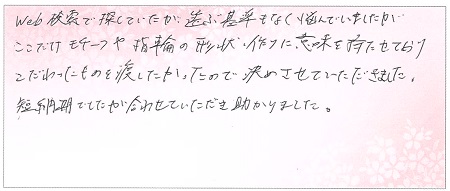 Web検索で探していたが、選ぶ基準もなく悩んでいましたが
ここだけ モチーフや指輪の形状・作りに意味を持たせており
こだわったものを渡したかったので決めさせていただきました。
短納期でしたが合わせていただき助かりました。